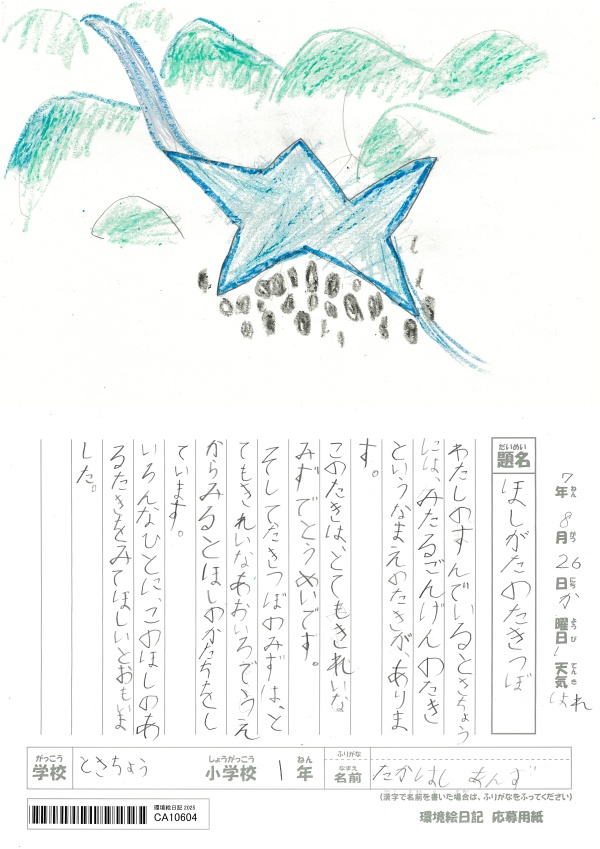 7年ねん8月がつ26日にちか曜日ようび天気てんきはれ
題名だいめい
ほしがたのたきつぼ
わたしのすんでいるときちょう
には、みたるごんげんのたき
というなまえのたきが、ありま
す。
このたきは、とてもきれいな
みずでとうめいです。
そしてたきつぼのみずは、と
てもきれいなあおいろでうえ
からみるとほしのかたちをし
ています。
いろんなひとに、このほしのあ
るたきをみてほしいとおもいま
した。
がっこう
学校
ときちょう
しょうがっこう
小学校
1
ねん
年
ふりがな
なまえ
名前
たかはし あんず
(漢字で名前を書いた場合は、ふりがなをふってください)
環境絵日記 2025
CA10604
環境絵日記 応募用紙